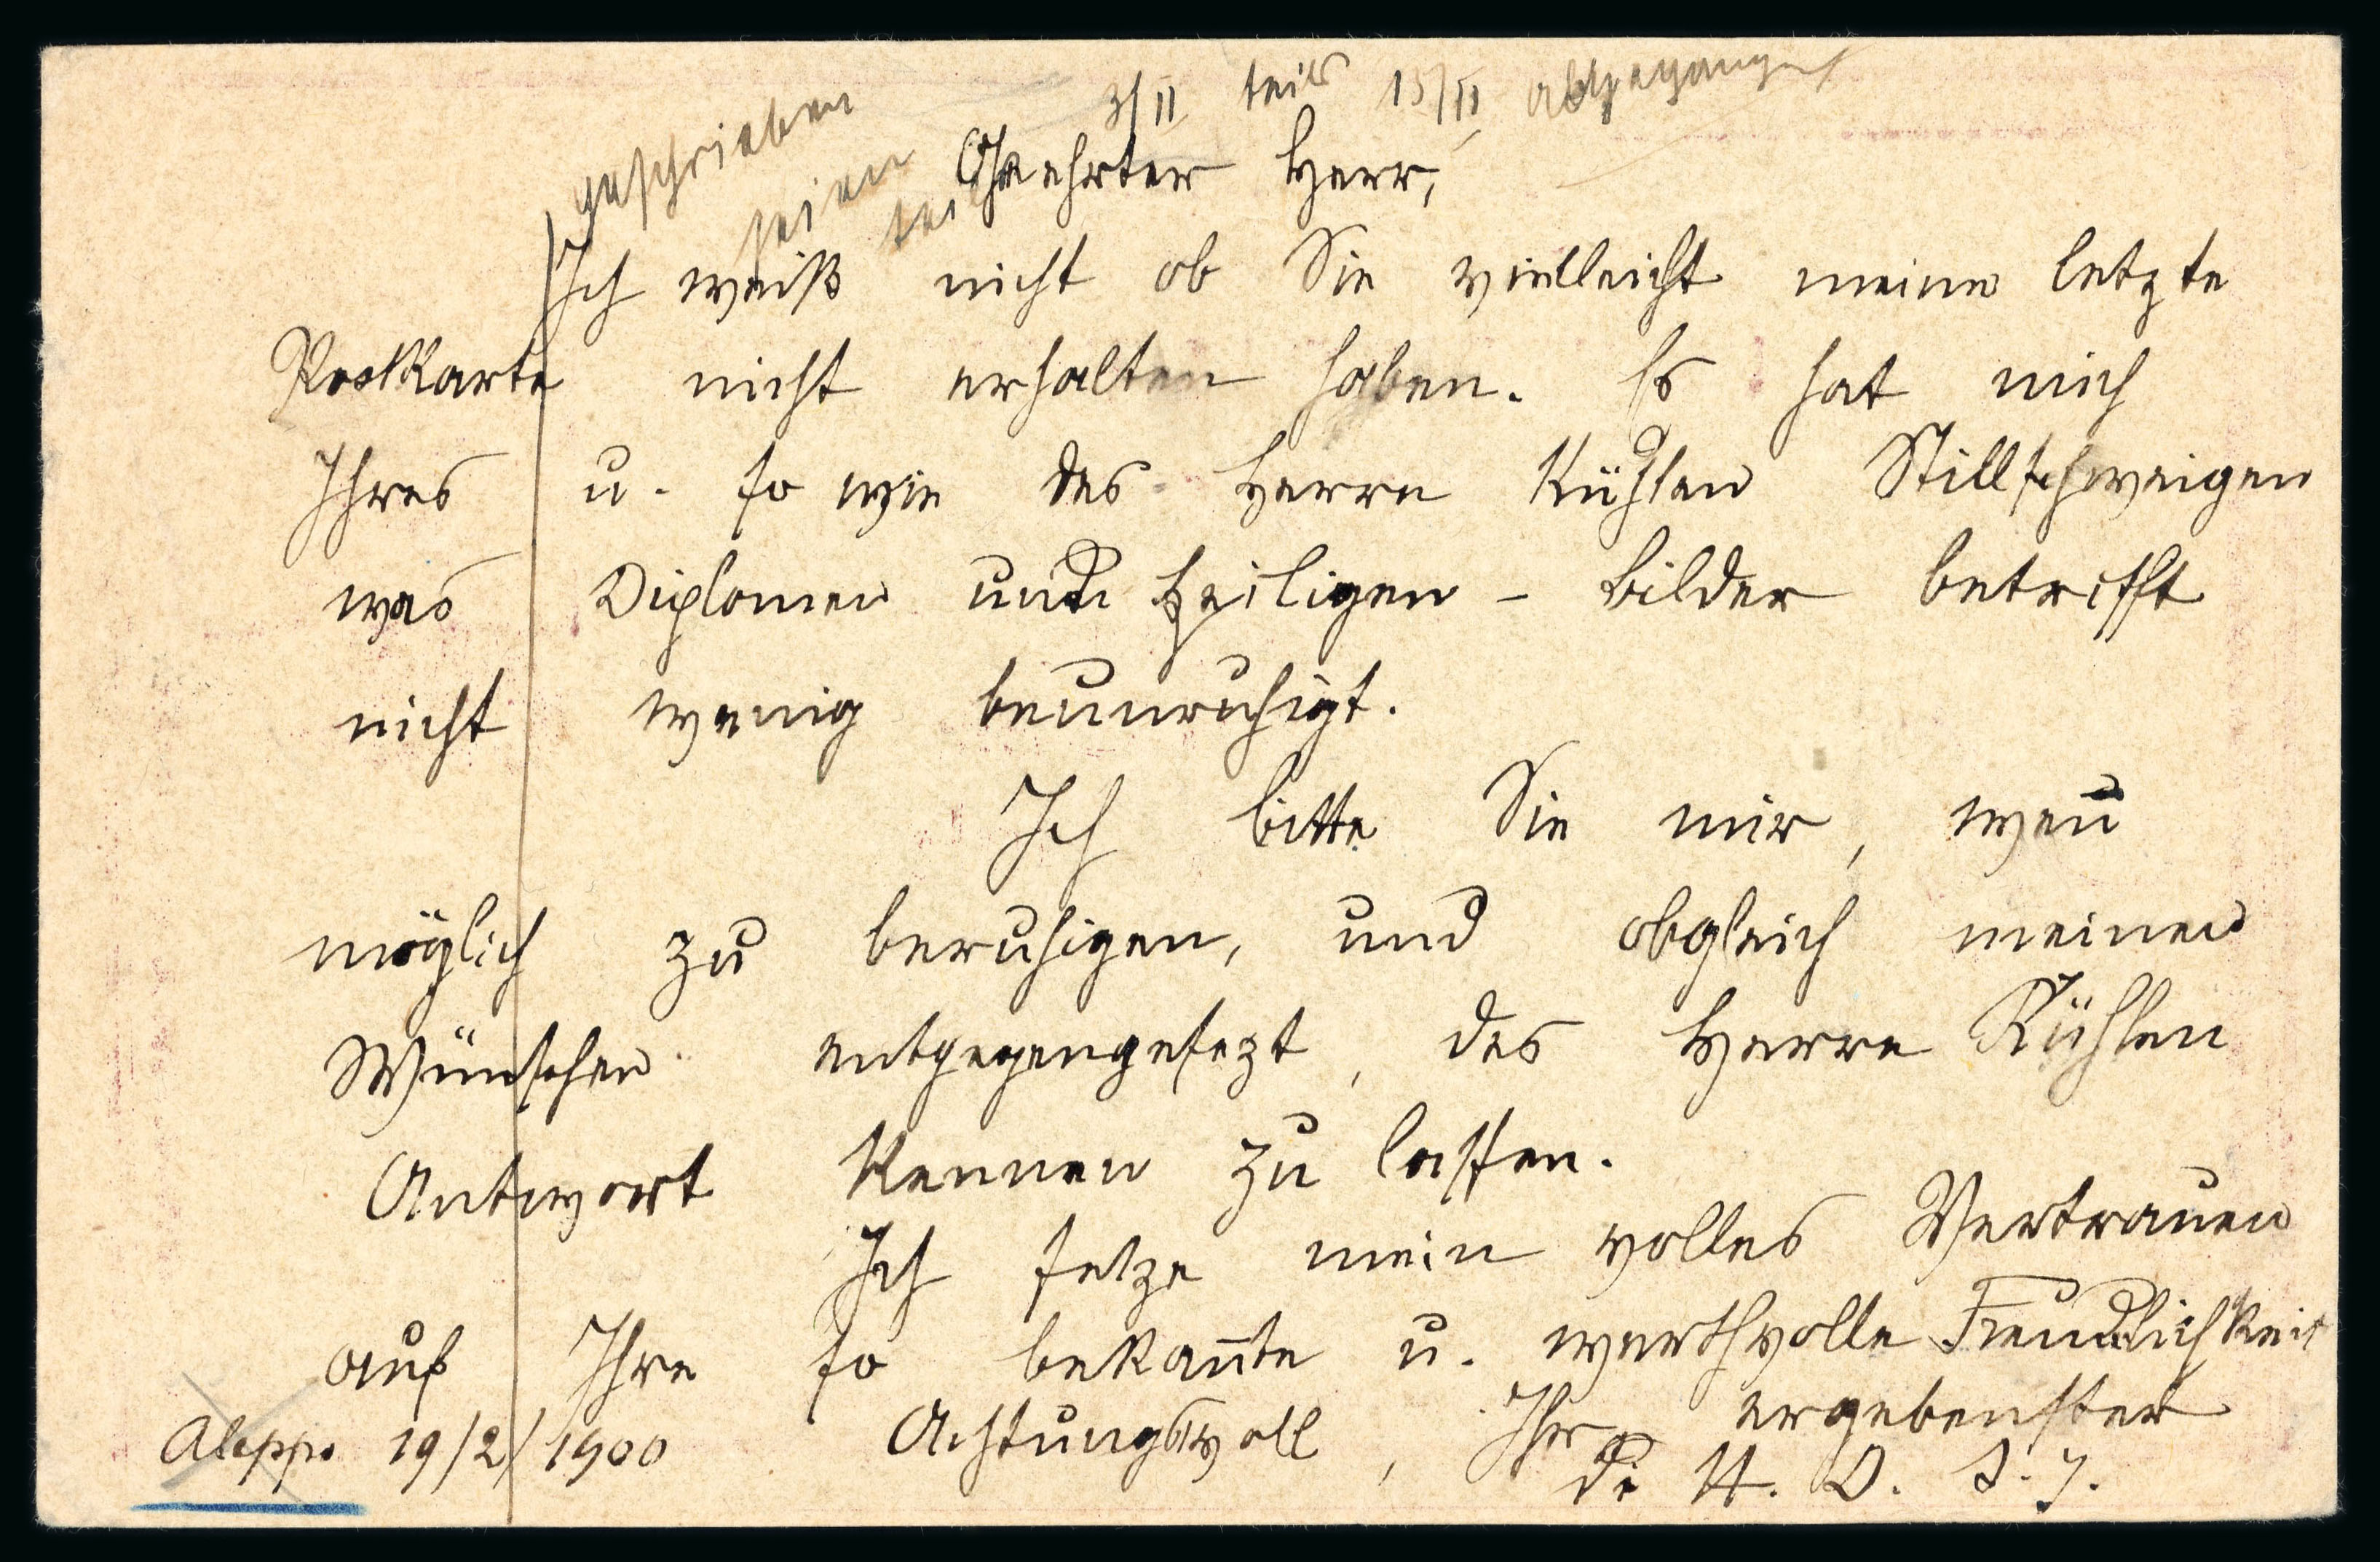 geschrieben
seien teils 3/II teils 15/II abgegangen
Geehrter Herr,
Ich weiß nicht ob Sie vielleicht meine letzte
Postkarte nicht erhalten haben. Es hat mich
Ihres u. so wie des Herrn Kühlen Stillschweigen
was Diplomen und Heiligen - bilder betrifft
nicht wenig beunruhigt.
Ich bitte Sie mir, weñ
möglich zu beruhigen, und obgleich meinen
Wünschen entgegengesezt, des Herrn Kühlen
Antwort kennen zu lassen.
Ich setze mein volles Vertrauen
auf Ihre so bekañte u. werthvolle Freundlichkeit
Achtungsvoll, Ihr ergebenster
Aleppo 19/2/1900
S. J.